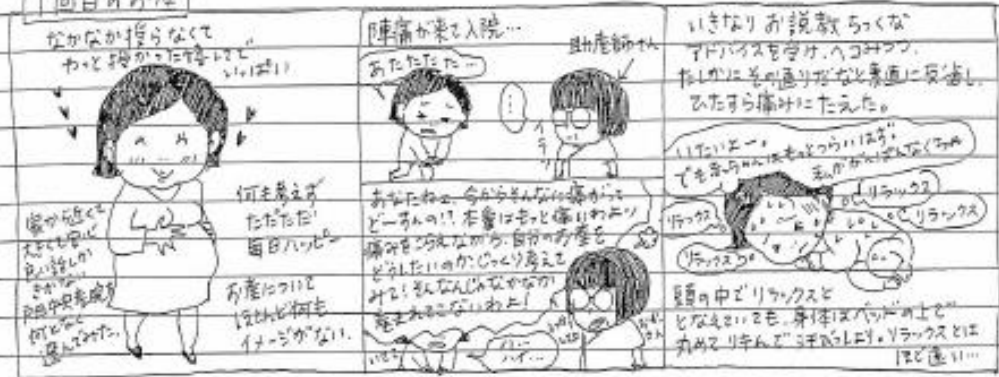 1回目のお産
なかなか授らなくて
やっと授かった
いっぱい
何も考えず
ただただ
毎日ハッピー
家から近くて
良い話しか
きかない
何となく
選んでみた。
お産について
ほとんど何も
イメージがない。
陣痛が来て入院…
助産師さん
あたたたた…
…
イラッ
あなたねェ、今からそんなに痛がって
どーすんの!?、本番はもっと痛いわよ!
痛みをこらえながら、自分のお産を
どうしたいのか、じっくり考えて
みて!そんなんじゃなかなか
産まれてこないわよ!
ハイ…
いきなりお説教ちっくな
アドバイスを受け、ヘコみつつ、
たしかにその通りだなと素直に反省し、
ひたすら痛みにたえた。
いたいよー。
でも赤ちゃんはもっとつらいはず。
私ががんばんなくちゃ
リラックス
リラックス
リラックス
リラックス
頭の中でリラックスと
となえていても、身体はベッドの上で
丸めてリキんで
リラックスとは
ほど遠い…